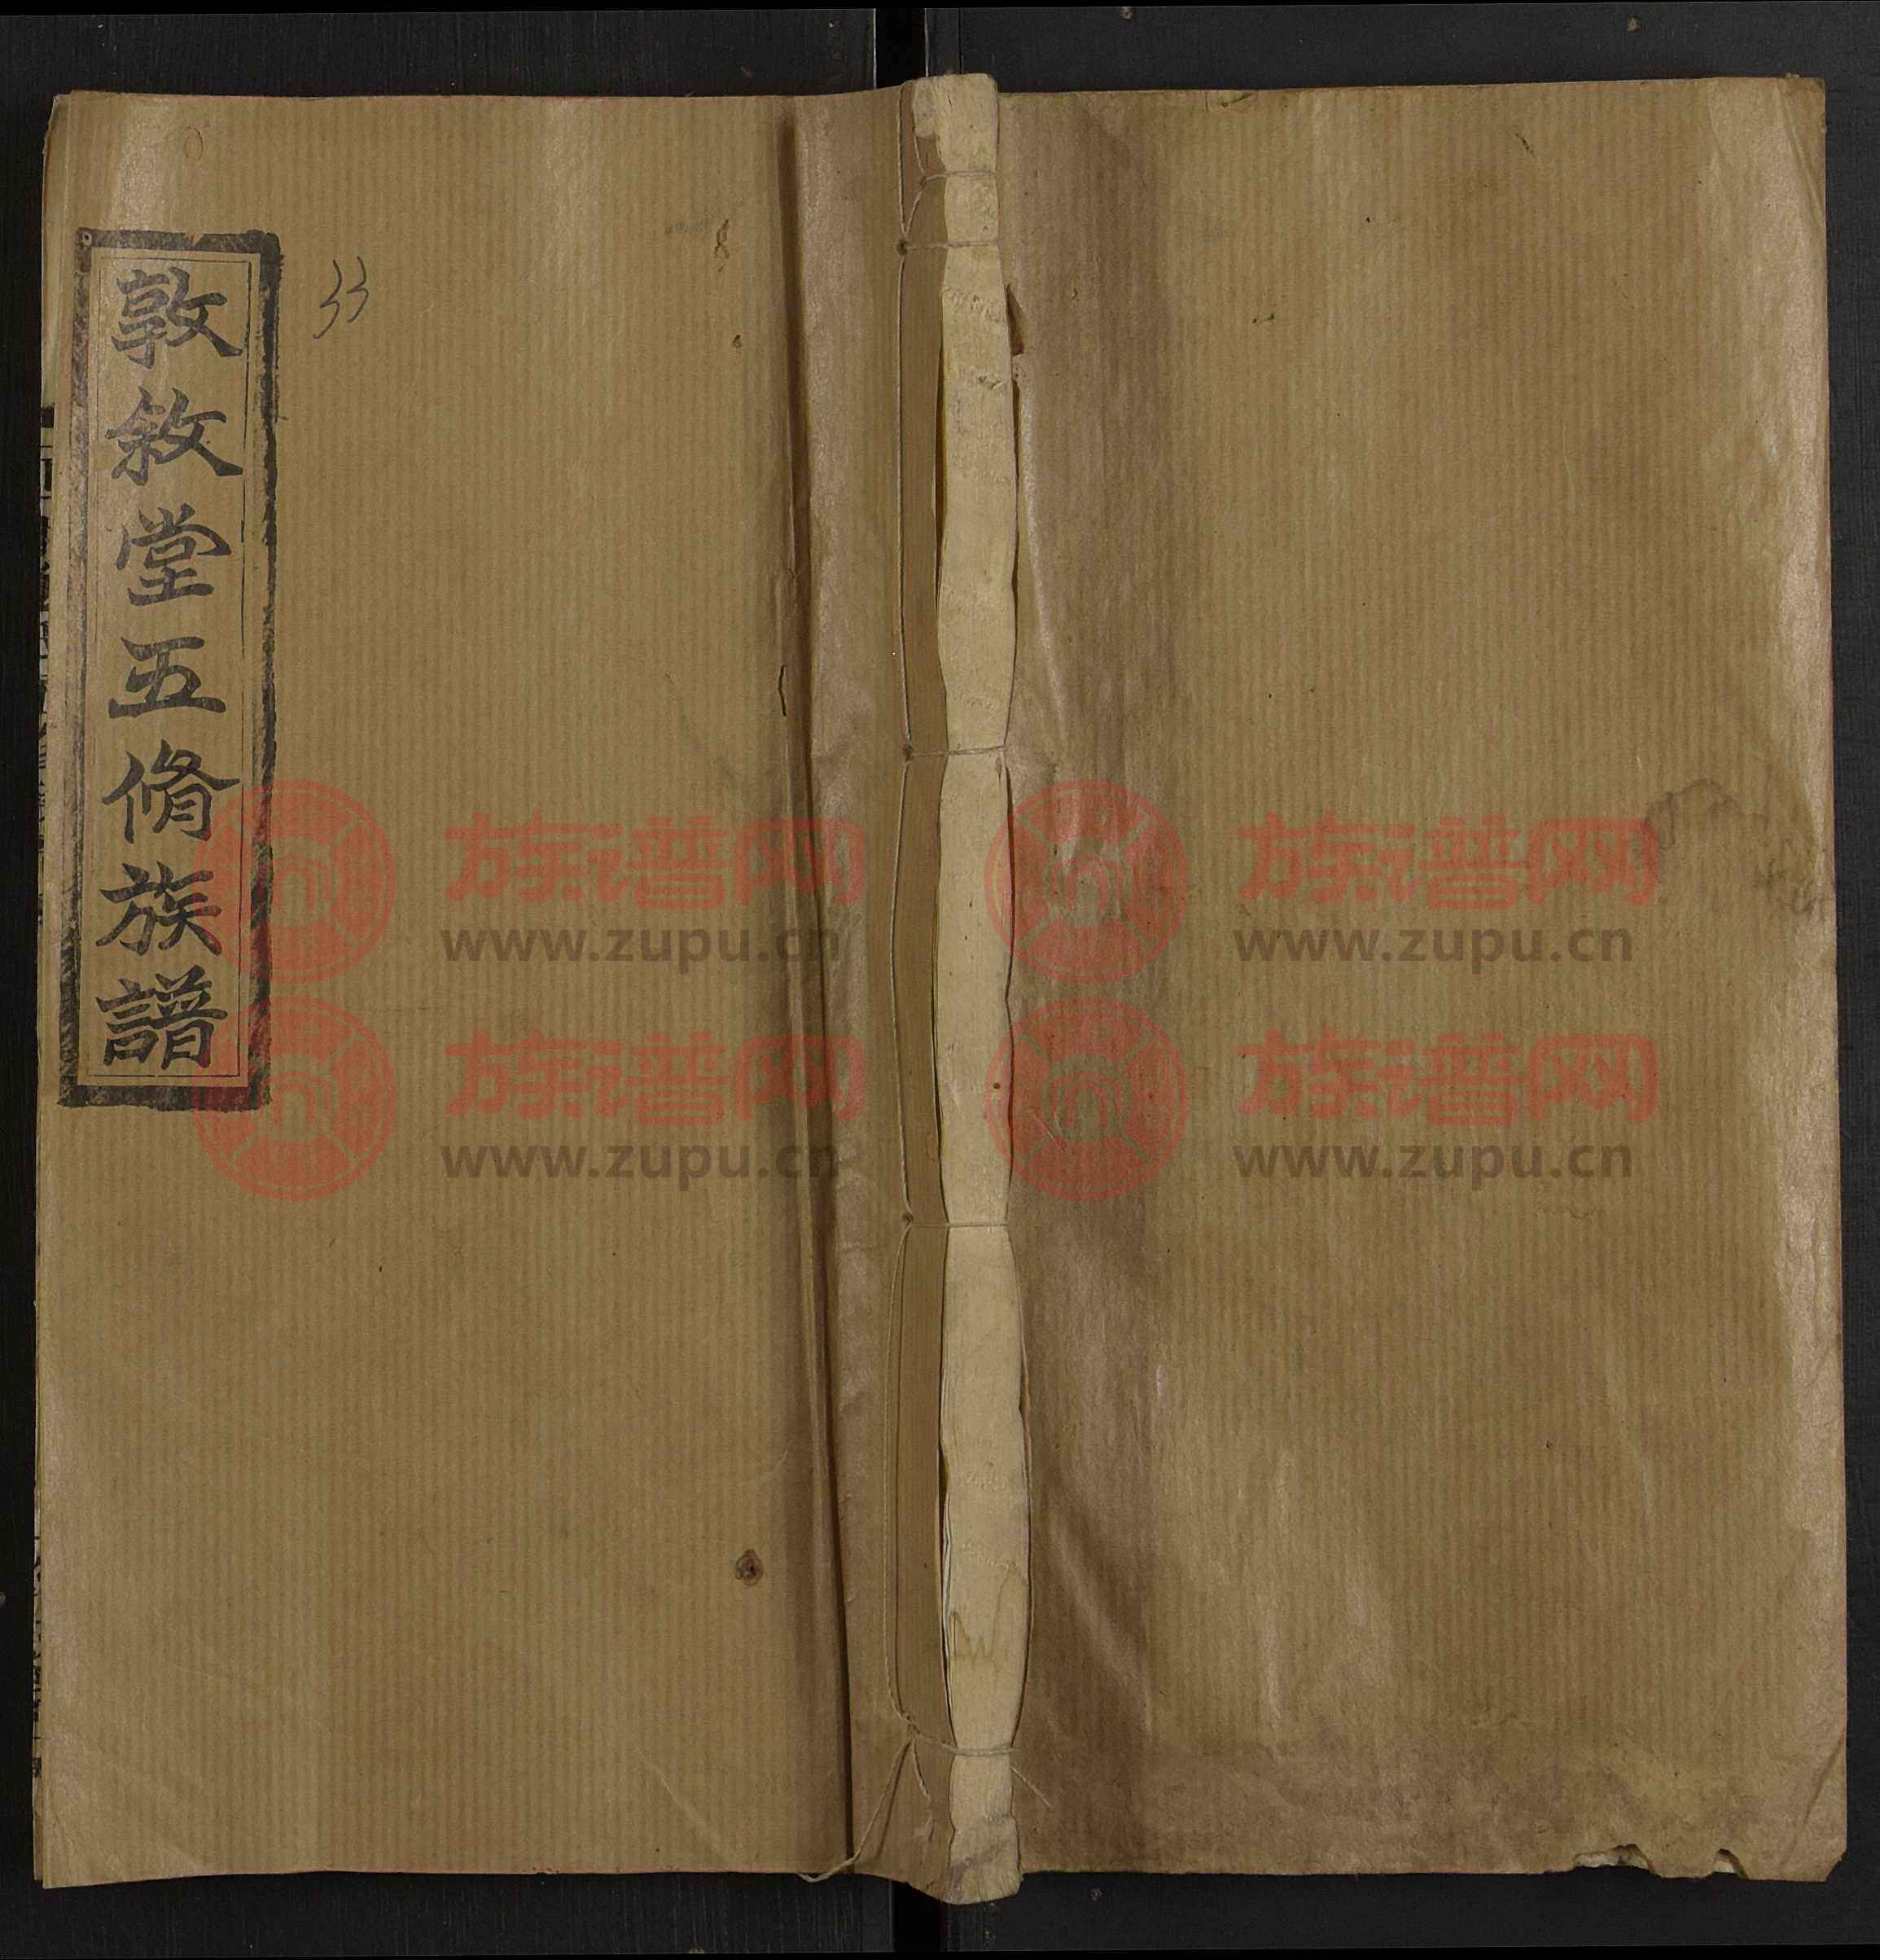 敦敘堂五脩族譜
33
族谱网
www.zupu.cn
族谱网
www.zupu.cn
族谱网
www.zupu.cn
族谱网
www.zupu.cn